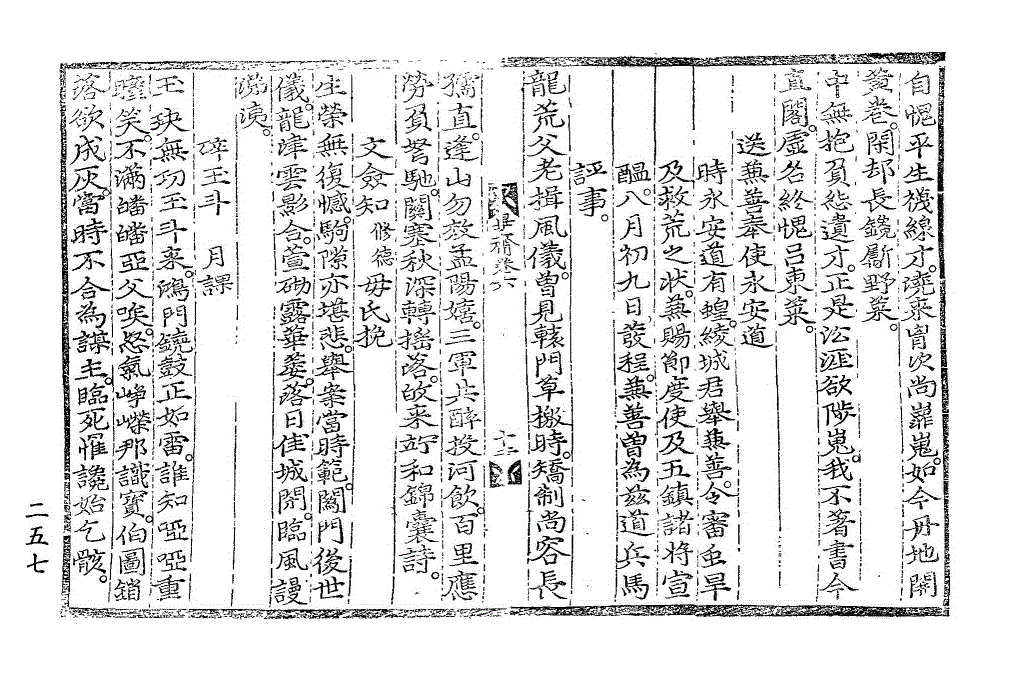 自愧平生機線才。邇來胷次尚嶵嵬。如今毋地闢
黃卷。閑却長鑱斸野菜。
中無抱負怨遺才。正是沿涯欲陟嵬。我不著書今
直閣。虛名終愧呂東萊。
送兼善奉使永安道
時永安道有蝗。綾城君舉兼善。令審虫旱
及救荒之狀。兼賜節度使及五鎮諸將宣
醞。八月初九日發程。兼善曾為兹道兵馬
評事。
龍荒父老揖風儀。曾見轅門草檄時。矯制尚容長
孺直。逢山勿效孟陽嬉。三軍共醉投河飲。百里應
勞負弩馳。關塞秋深轉搖落。故來竚和錦囊詩。
文僉知 修德 毋氏挽
生榮無復憾。駒隙亦堪悲。舉案當時範。闔門後世
儀。龍津雲影合。萱砌露華萎。落日佳城閉。臨風謾
涕洟。
碎玉斗 月課
玉玦無功玉斗來。鴻門鐃鼓正如雷。誰知啞啞重
瞳笑。不滿皤皤亞父唉。怒氣崢嶸那識寶。伯圖銷
落欲成灰。當時不合為謀主。臨死惟讒始乞骸。
二五七